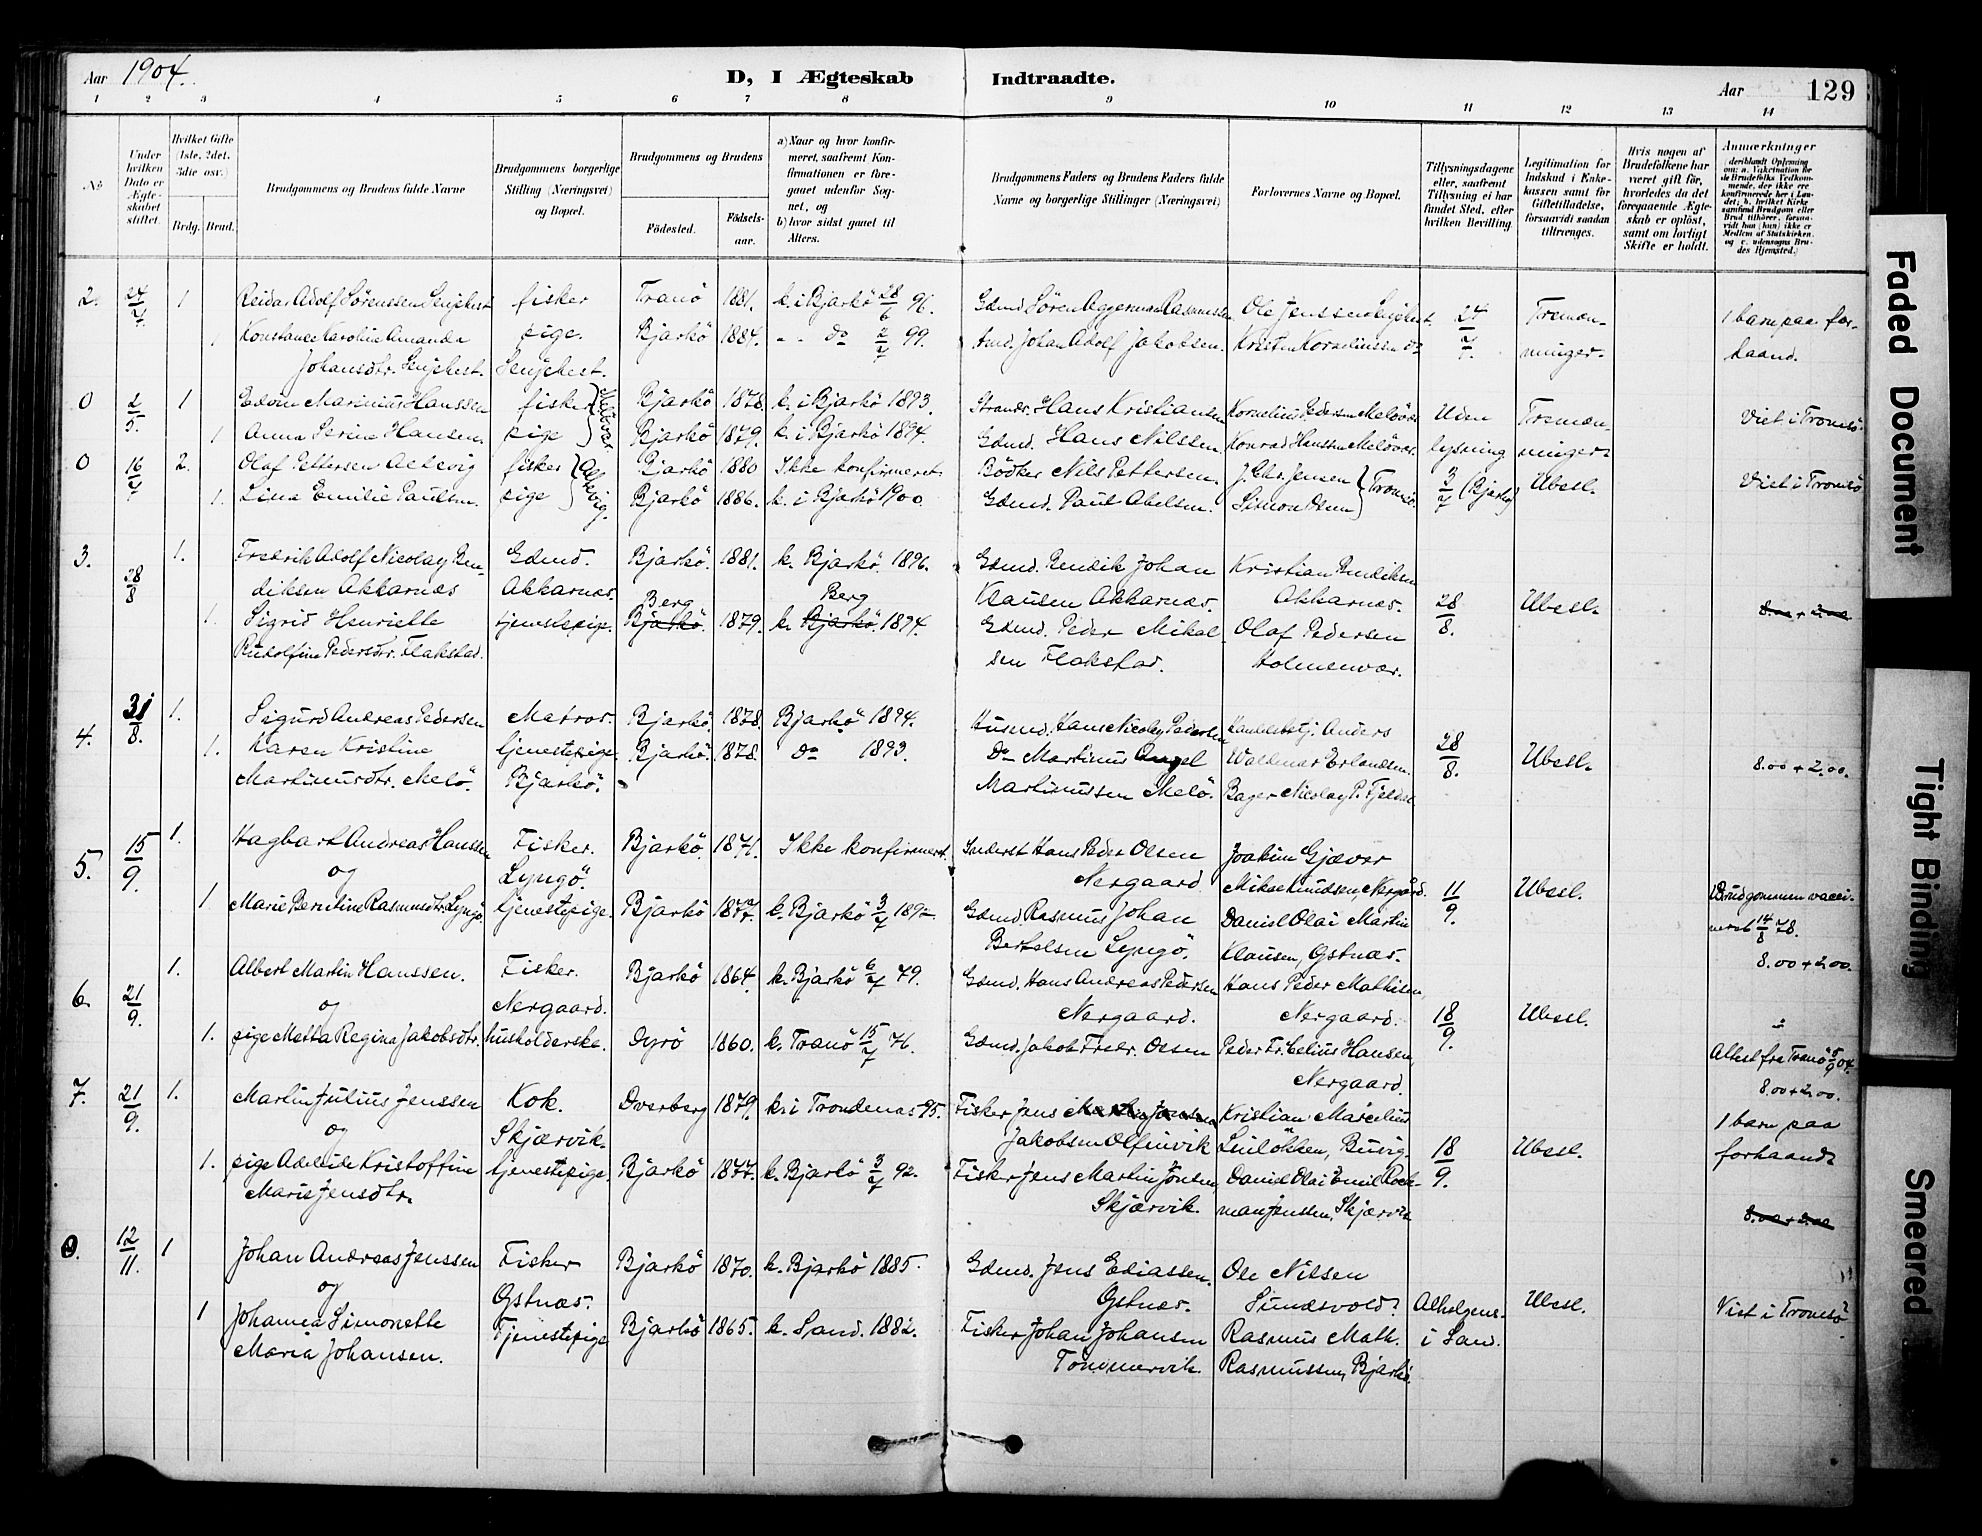 Aar 1904.
D, I Ægteskab Indtraadte.
Aar 129
1 2 3 4 5 6 7 8 9 10 11 12 13 14
No
Under hvilken Dato er Ægteskabet stiftet.
Hvilket Gifte (1ste, 2det, 3die osv.)
Brdg. Brud.
Brudgommens og Brudens fulde Navne
Brudgommens borgerlige Stilling (Næringsvei) og Bopæl.
Brudgommens og Brudens
Fødested. Fødselsaar.
a) Naar og hvor konfirmeret, saafremt Konfirmationen er foregaaet udenfor Sognet, og
b) hvor sidst gaaet til Alters.
Brudgommens Faders og Brudens Faders fulde Navne og borgerlige Stillinger (Næringsvei)
Forlovernes Navne og Bopæl.
Tillysningsdagene eller, saafremt Tillysning ei har fundet Sted, efter hvilken Bevilling.
Legitimation for Indskud i Enkekassen samt for Giftetilladelse, forsaavidt saadan tiltrænges.
Hvis nogen af Brudefolkene har været gift før, hvorledes da det foregaaende Ægteskab er opløst, samt om lovligt Skifte er holdt.
Anmærkninger
(deriblandt Oplysning om: a. Vakcination for de Brudefolks Vedkommende, der ikke ere konfirmerede her i Landet; b. hvilket Kirkesamfund Brudgom eller Brud tilhører, forsaavidt han (hun) ikke er Medlem af Statskirken, og c. udensogns Brudes Hjemsted.)
2. 24/7 1 Reidar Adolf Sørenssen Senjehest fisker Tranö 1881. k. i Bjarkö 28/6 96. Gdmd. Sören Rasmussen Ole Jenssen Senjehest. 24/7. Tremænninger. 1 barn paa forhaand.
1 Konstance Karoline Amanda pige. Bjarkö 1884. " " do 2/7 99. Johan Adolf Jakobsen. Kristen Korneliussen do
Johansdtr. Senjehest. Senjehest.
0 2/5. 1 Edvin Marinius Hanssen fisker Bjarkö 1878. k. i Bjarkö 1893. Strands. Hans Kristiansen Kornelius Pedersen Melövær Uden lysning Tremænninger Viet i Tromsö.
1 Anna Serine Hansen. pige Melövær Bjarkö 1879. k. i Bjarkö 1894. Gdmd. Hans Nilssen. Konrad Hanssen Melövær.
0 16/7 2. Olaf Pettersen Alevig fisker Bjarkö 1880 Ikke konfirmeret. Bödker Nils Pettersen. J. Chr. Jensen Tromsö. 3/7 (Bjarkö) Ubesl. Viet i Tromsö
1. Lina Emilie Paulsen. pige Bjarkö 1886. k. i Bjarkö 1900. Gdmd. Paul Abelsen. Simon Olsen
3. 28/8 1. Fredrik Adolf Nicolay Ben- Gdmd. Bjarkö. 1881. k. Bjarkö. 1896. Gdmd. Bendik Johan Kristian Bendiksen
diksen Akkarnæs Akkarnæs. Klausen Akkarnæs. Akkarnæs. 28/8. Ubesl. 8.00 + 2.00
Berg Berg
1. Sigrid Henriette tjenestepige. Bjarkö. 1879. k. Bjarkö. 1894. Gdmd. Peder Mikal- Olaf Pedersen
Rudolfine Pedersdtr. Flakstad. sen Flakstad. Holmenvær.
4. 31/8. 1. Sigurd Andreas Pedersen Matros. Bjarkö. 1878. Bjarkö 1894. Husmd. Hans Nicolay Pedersen Handelsbetj. Anders
1. Karen Kristine tjenestepige. Bjarkö. 1878. Do 1893. Do Martinus Angel Waldemar Erlandsen. 28/8. Ubesl. 8.00 + 2.00.
Martinusdtr. Melö. Bjarkö. Martinussen Melö. Bager Nicolay P. Fjeldal
5. 15/9. 1. Hagbart Andreas Hanssen Fisker. Bjarkö. 1871. Ikke konfirmeret. Inderst Hans Peder Olsen Joakim Gjæver
og Lyngö. Nergaard. Mikal Knudsen, Nergård. 11/9. Ubesl. Brudgommen vacci-
1. Marie Berntine Rasmusdtr. Lyngö. tjenestepige. Bjarkö 1877. k. Bjarkö 3/7 1892. Gdmd. Rasmus Johan Daniel Olai Martin neret 14/8 78.
Bertelsen Lyngö. Klausen, Gstnæs. 8.00 + 2.00.
6. 21/9. 1. Albert Martin Hanssen. Fisker. Bjarkö 1864. k. Bjarkö 6/7 79. Gdmd. Hans Andreas Pedersen Hans Peder Mathisen,
og Nergaard. Nergaard. Nergaard. 18/9. Ubesl. "
1. pige Metta Regina Jakobsdtr. husholderske. Dyrö 1860. k. Tranö 15/7 76. Gdmd. Jakob Fredr. Olsen Peder Fr. Celius Hansen, Attest fra Tranö 5/9 04.
Nergaard. 8.00 + 2.00.
7. 21/9. 1. Martin Julius Jenssen Kok. Overberg 1879. k. i Trondenæs 95. Fisker Jens Martin Jensen Kristian Marcelius 1 barn paa
og Skjærvik. Jakobsen Olfinvik 18/9. Ubesl. forhaand.
1. pige Adelide Kristoffine tjenestepige. Bjarkö 1877. k. Bjarkö 3/7 92. Fisker Jens Martin Jonsen, Daniel Olai Emil Rock-
Marie Jensdtr. Skjærvik. man Jenssen, Skjærvik 8.00 + 2.00
0. 12/11. 1 Johan Andreas Jenssen Fisker Bjarkö 1870. k. Bjarkö 1885. Gdmd. Jens Ediassen. Ole Nilsen
og Gstnæs. Gstnæs. Sundsvold. Ubesl. Viet i Tromsö.
1 Johanna Simonette Tjenestepige Bjarkö 1865. k. Sand. 1882. Fisker Johan Johansen Rasmus Math. i Sand.
Maria Johansen. Tömmervik. Rasmussen, Bjarkö.
Faded Document
Tight Binding
Smeared